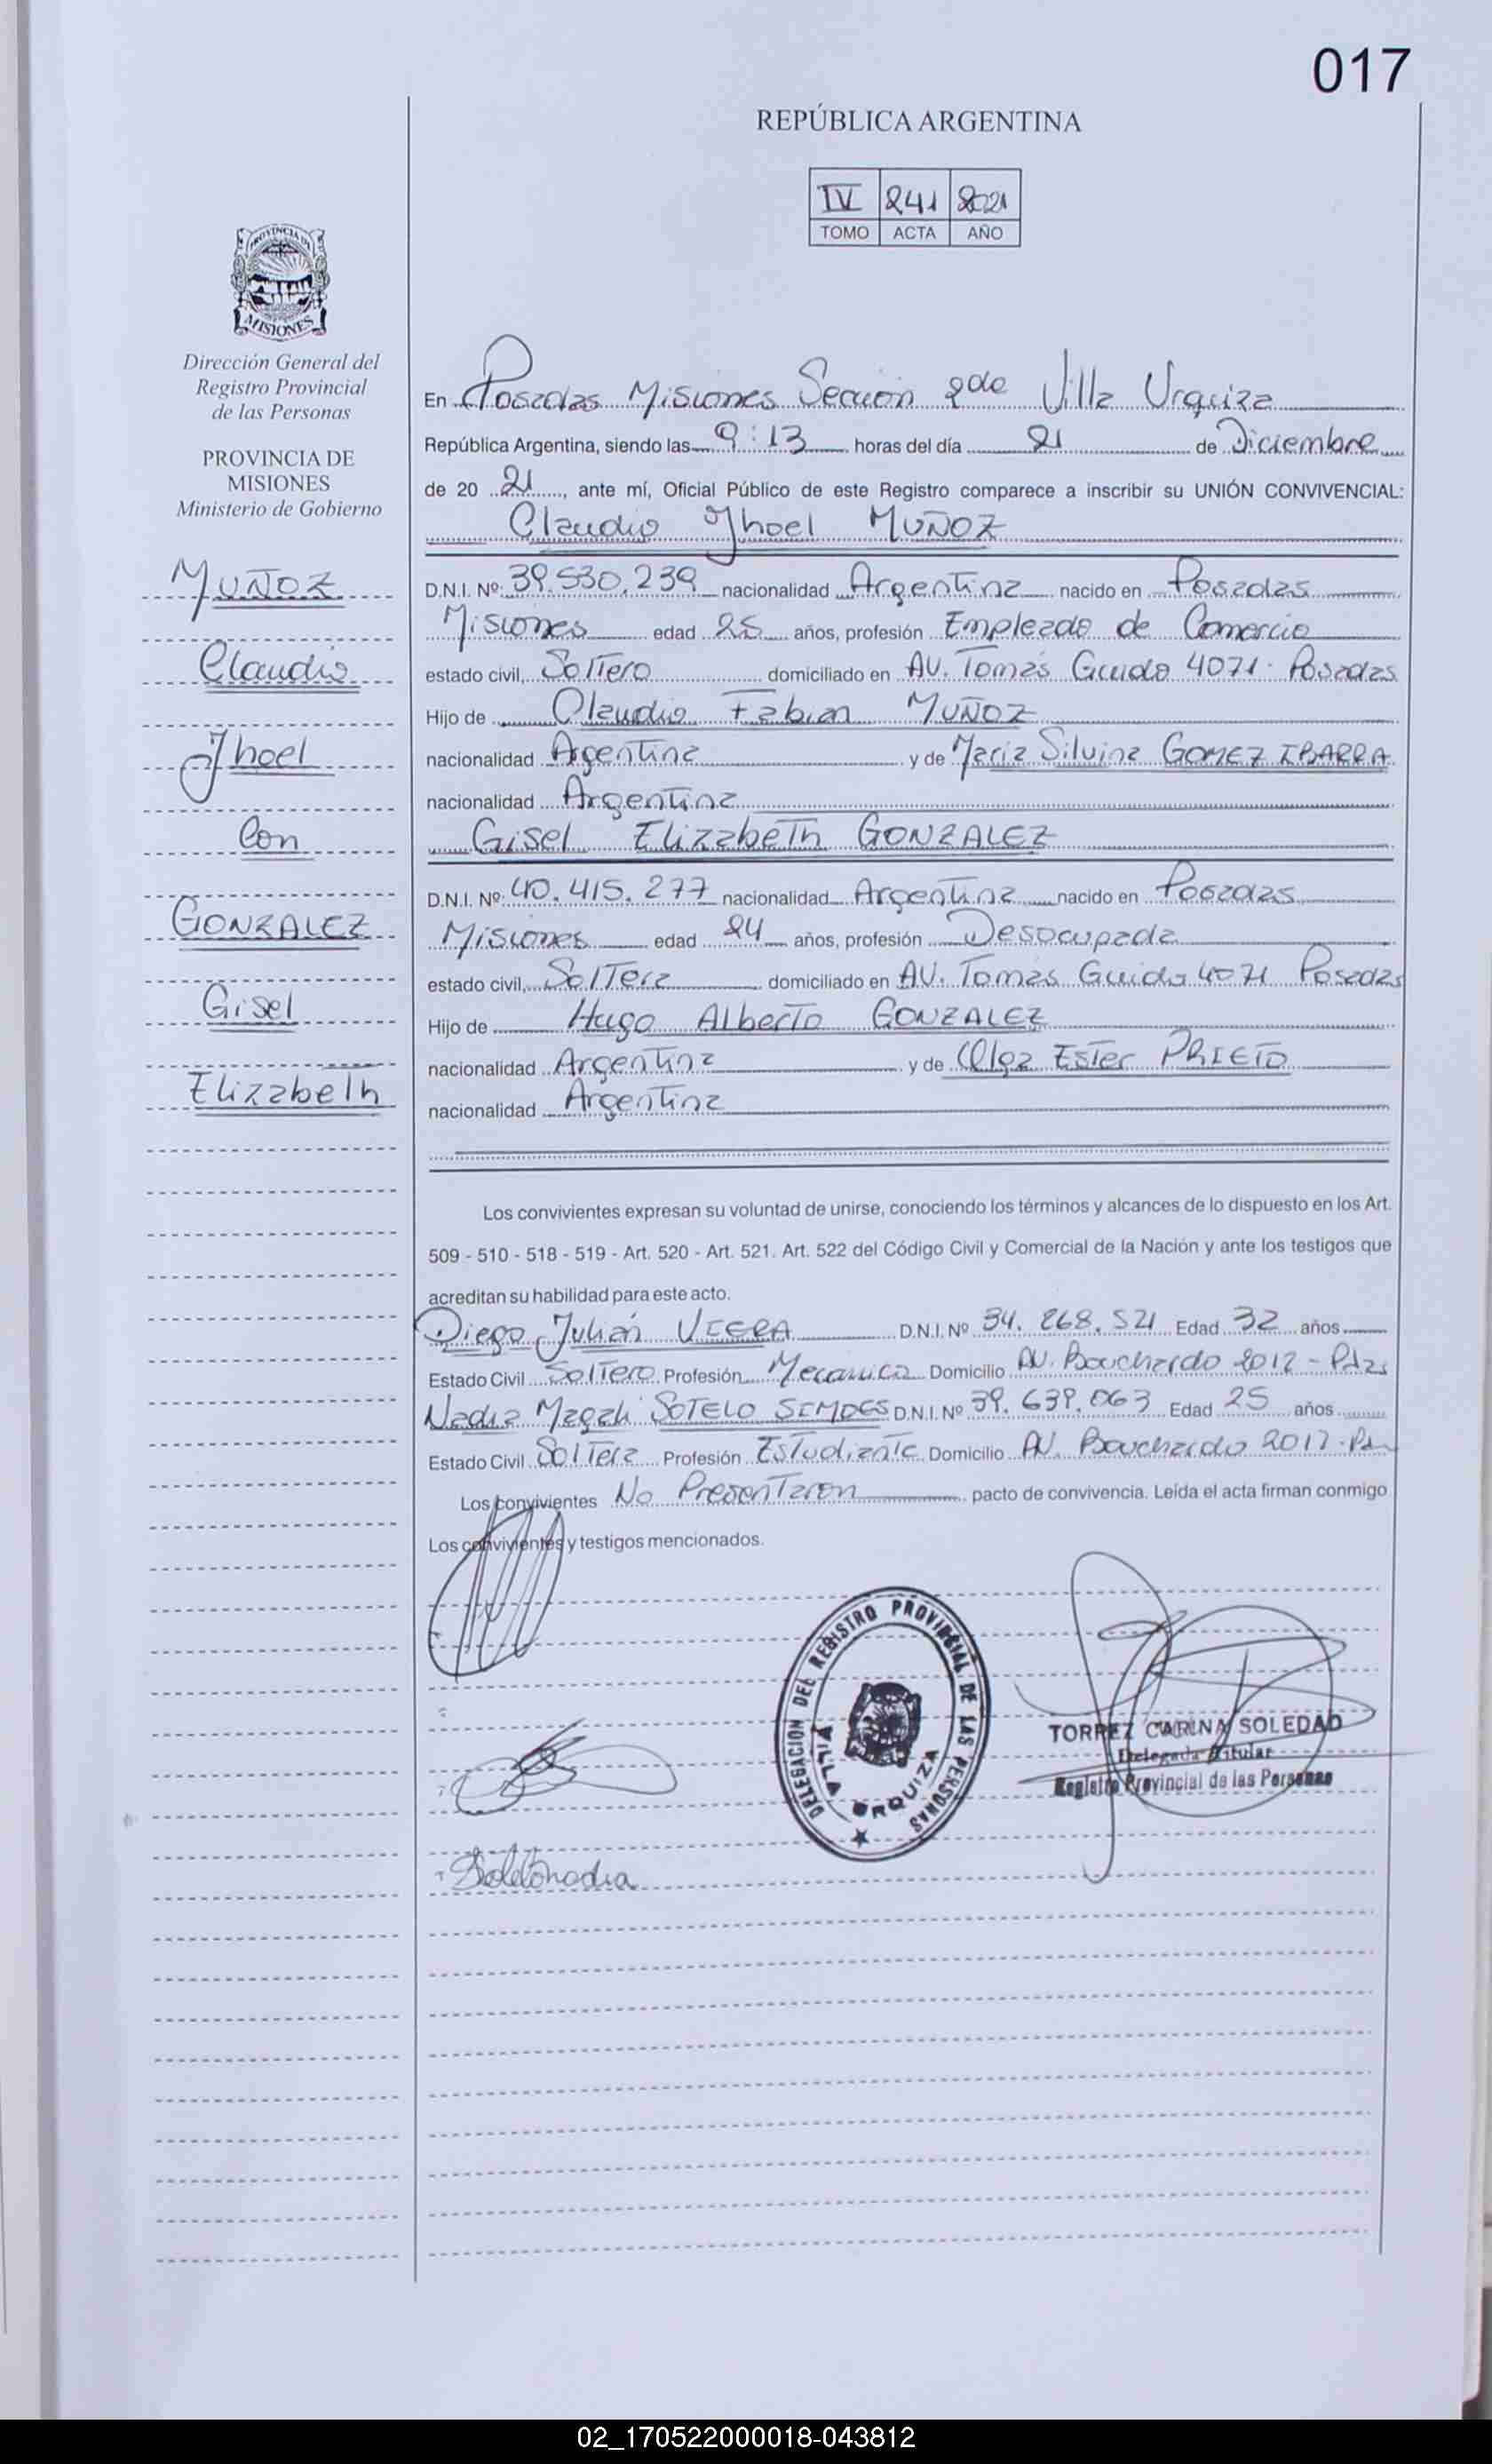 017
REPÚBLICA ARGENTINA
IV 241 2021
TOMO ACTA AÑO
PROVINCIA DE
MISIONES
Dirección General del
Registro Provincial
de las Personas
PROVINCIA DE
MISIONES
Ministerio de Gobierno
MUÑOZ
Claudio
Jhoel
Con
GONZALEZ
Gisel
Elizabeth
En Posadas Misiones Sección 2da Villa Urquiza
República Argentina, siendo las 9:13 horas del día 21 de Diciembre
de 20 21, ante mí, Oficial Público de este Registro comparece a inscribir su UNIÓN CONVIVENCIAL:
Claudio Jhoel MUÑOZ
D.N.I. Nº 39.530.239 nacionalidad Argentina nacido en Posadas
Misiones edad 25 años, profesión Empleado de Comercio
estado civil, Soltero domiciliado en AV. Tomás Guido 4071 Posadas
Hijo de Claudio Fabian MUÑOZ
nacionalidad Argentina y de Maria Silvina GOMEZ IBARRA
nacionalidad Argentina
Gisel Elizabeth GONZALEZ
D.N.I. Nº 40.415.277 nacionalidad Argentina nacido en Posadas
Misiones edad 24 años, profesión Desocupada
estado civil, Soltera domiciliado en AV. Tomás Guido 4071 Posadas
Hijo de Hugo Alberto GONZALEZ
nacionalidad Argentina y de Olga Ester PRIETO
nacionalidad Argentina
Los convivientes expresan su voluntad de unirse, conociendo los términos y alcances de lo dispuesto en los Art.
509 - 510 - 518 - 519 - Art. 520 - Art. 521. Art. 522 del Código Civil y Comercial de la Nación y ante los testigos que
acreditan su habilidad para este acto.
Diego Julián VIERA D.N.I. Nº 34.268.521 Edad 32 años
Estado Civil Soltero Profesión Mecanica Domicilio AV. Bouchardo 2012 - Pdas
Nadia Magali SOTELO SEMDES D.N.I. Nº 39.639.063 Edad 25 años
Estado Civil Soltera Profesión Estudiante Domicilio AV. Bouchardo 2012
Los convivientes No Presentaron pacto de convivencia. Leída el acta firman conmigo
Los convivientes y testigos mencionados.
DELEGACION DEL REGISTRO PROVINCIAL DE LAS PERSONAS
VILLA URQUIZA
TORREZ CARINA SOLEDAD
Delegada Titular
Registro Provincial de las Personas
02_170522000018-043812